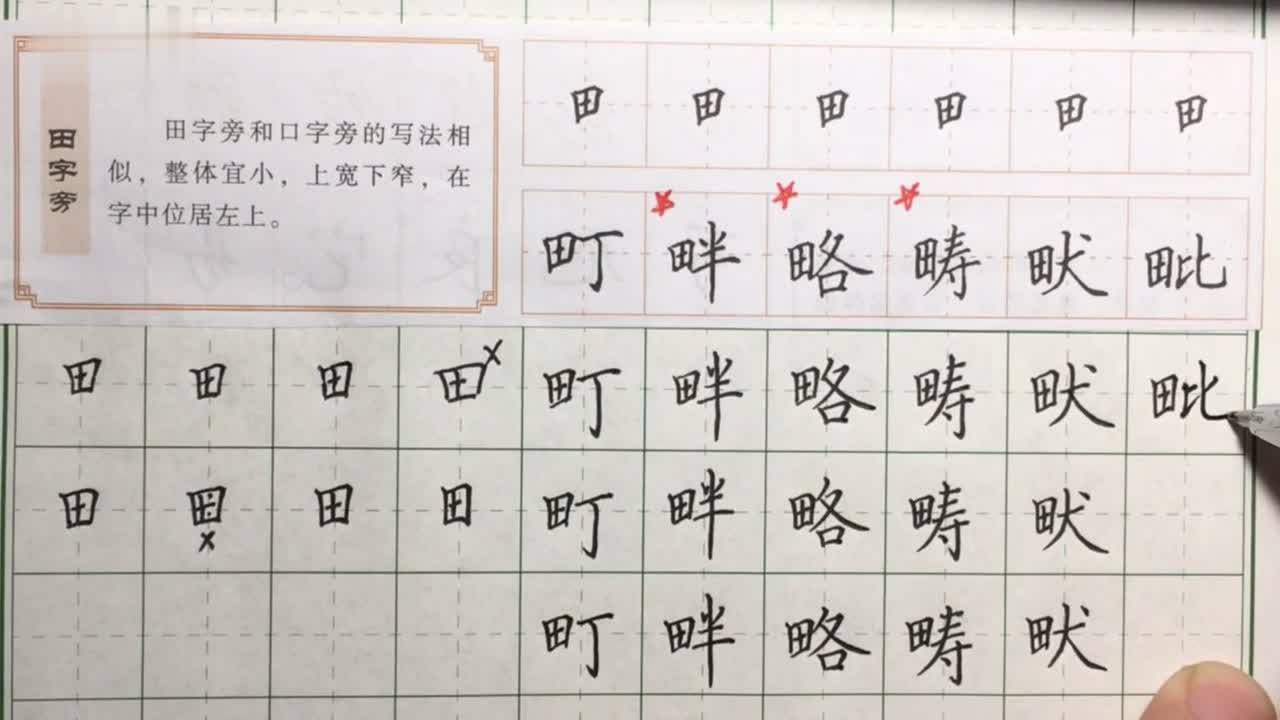 田字旁
田字旁和口字旁的写法相
似，整体宜小，上宽下窄，在
字中位居左上。
田 田 田 田 田 田
町 畔 略 畴 畎 毗
田 田 田 田 x 町 畔 略 畴 畎 毗
田 田 田 田 町 畔 略 畴 畎
x
町 畔 略 畴 畎